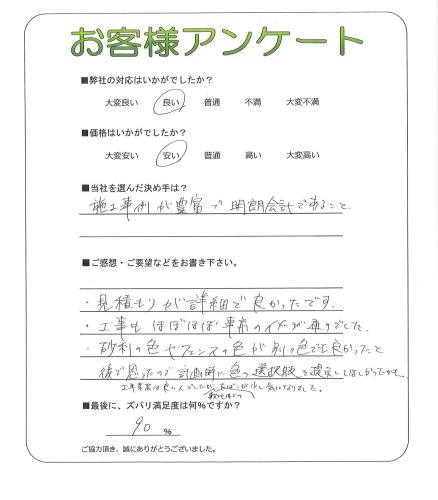 お客様アンケート
■弊社の対応はいかがでしたか？
大変良い 良い 普通 不満 大変不満
■価格はいかがでしたか？
大変安い 安い 普通 高い 大変高い
■当社を選んだ決め手は？
施工事例が豊富で明朗会計であること
■ご感想・ご要望などをお書き下さい。
・見積もりが詳細で良かったです.
・工事もほぼほぼ事前のイメージが通りでした.
・砂利の色やフェンスの色が別の色でも良かったと
後で思ったので計画時に色の選択肢を提示してほしかったです.
工事業者は良い人でしたが、たばこが少し気になりました。
敷地内での
■最後に、ズバリ満足度は何％ですか？
90 ％
ご協力頂き、誠にありがとうございました。